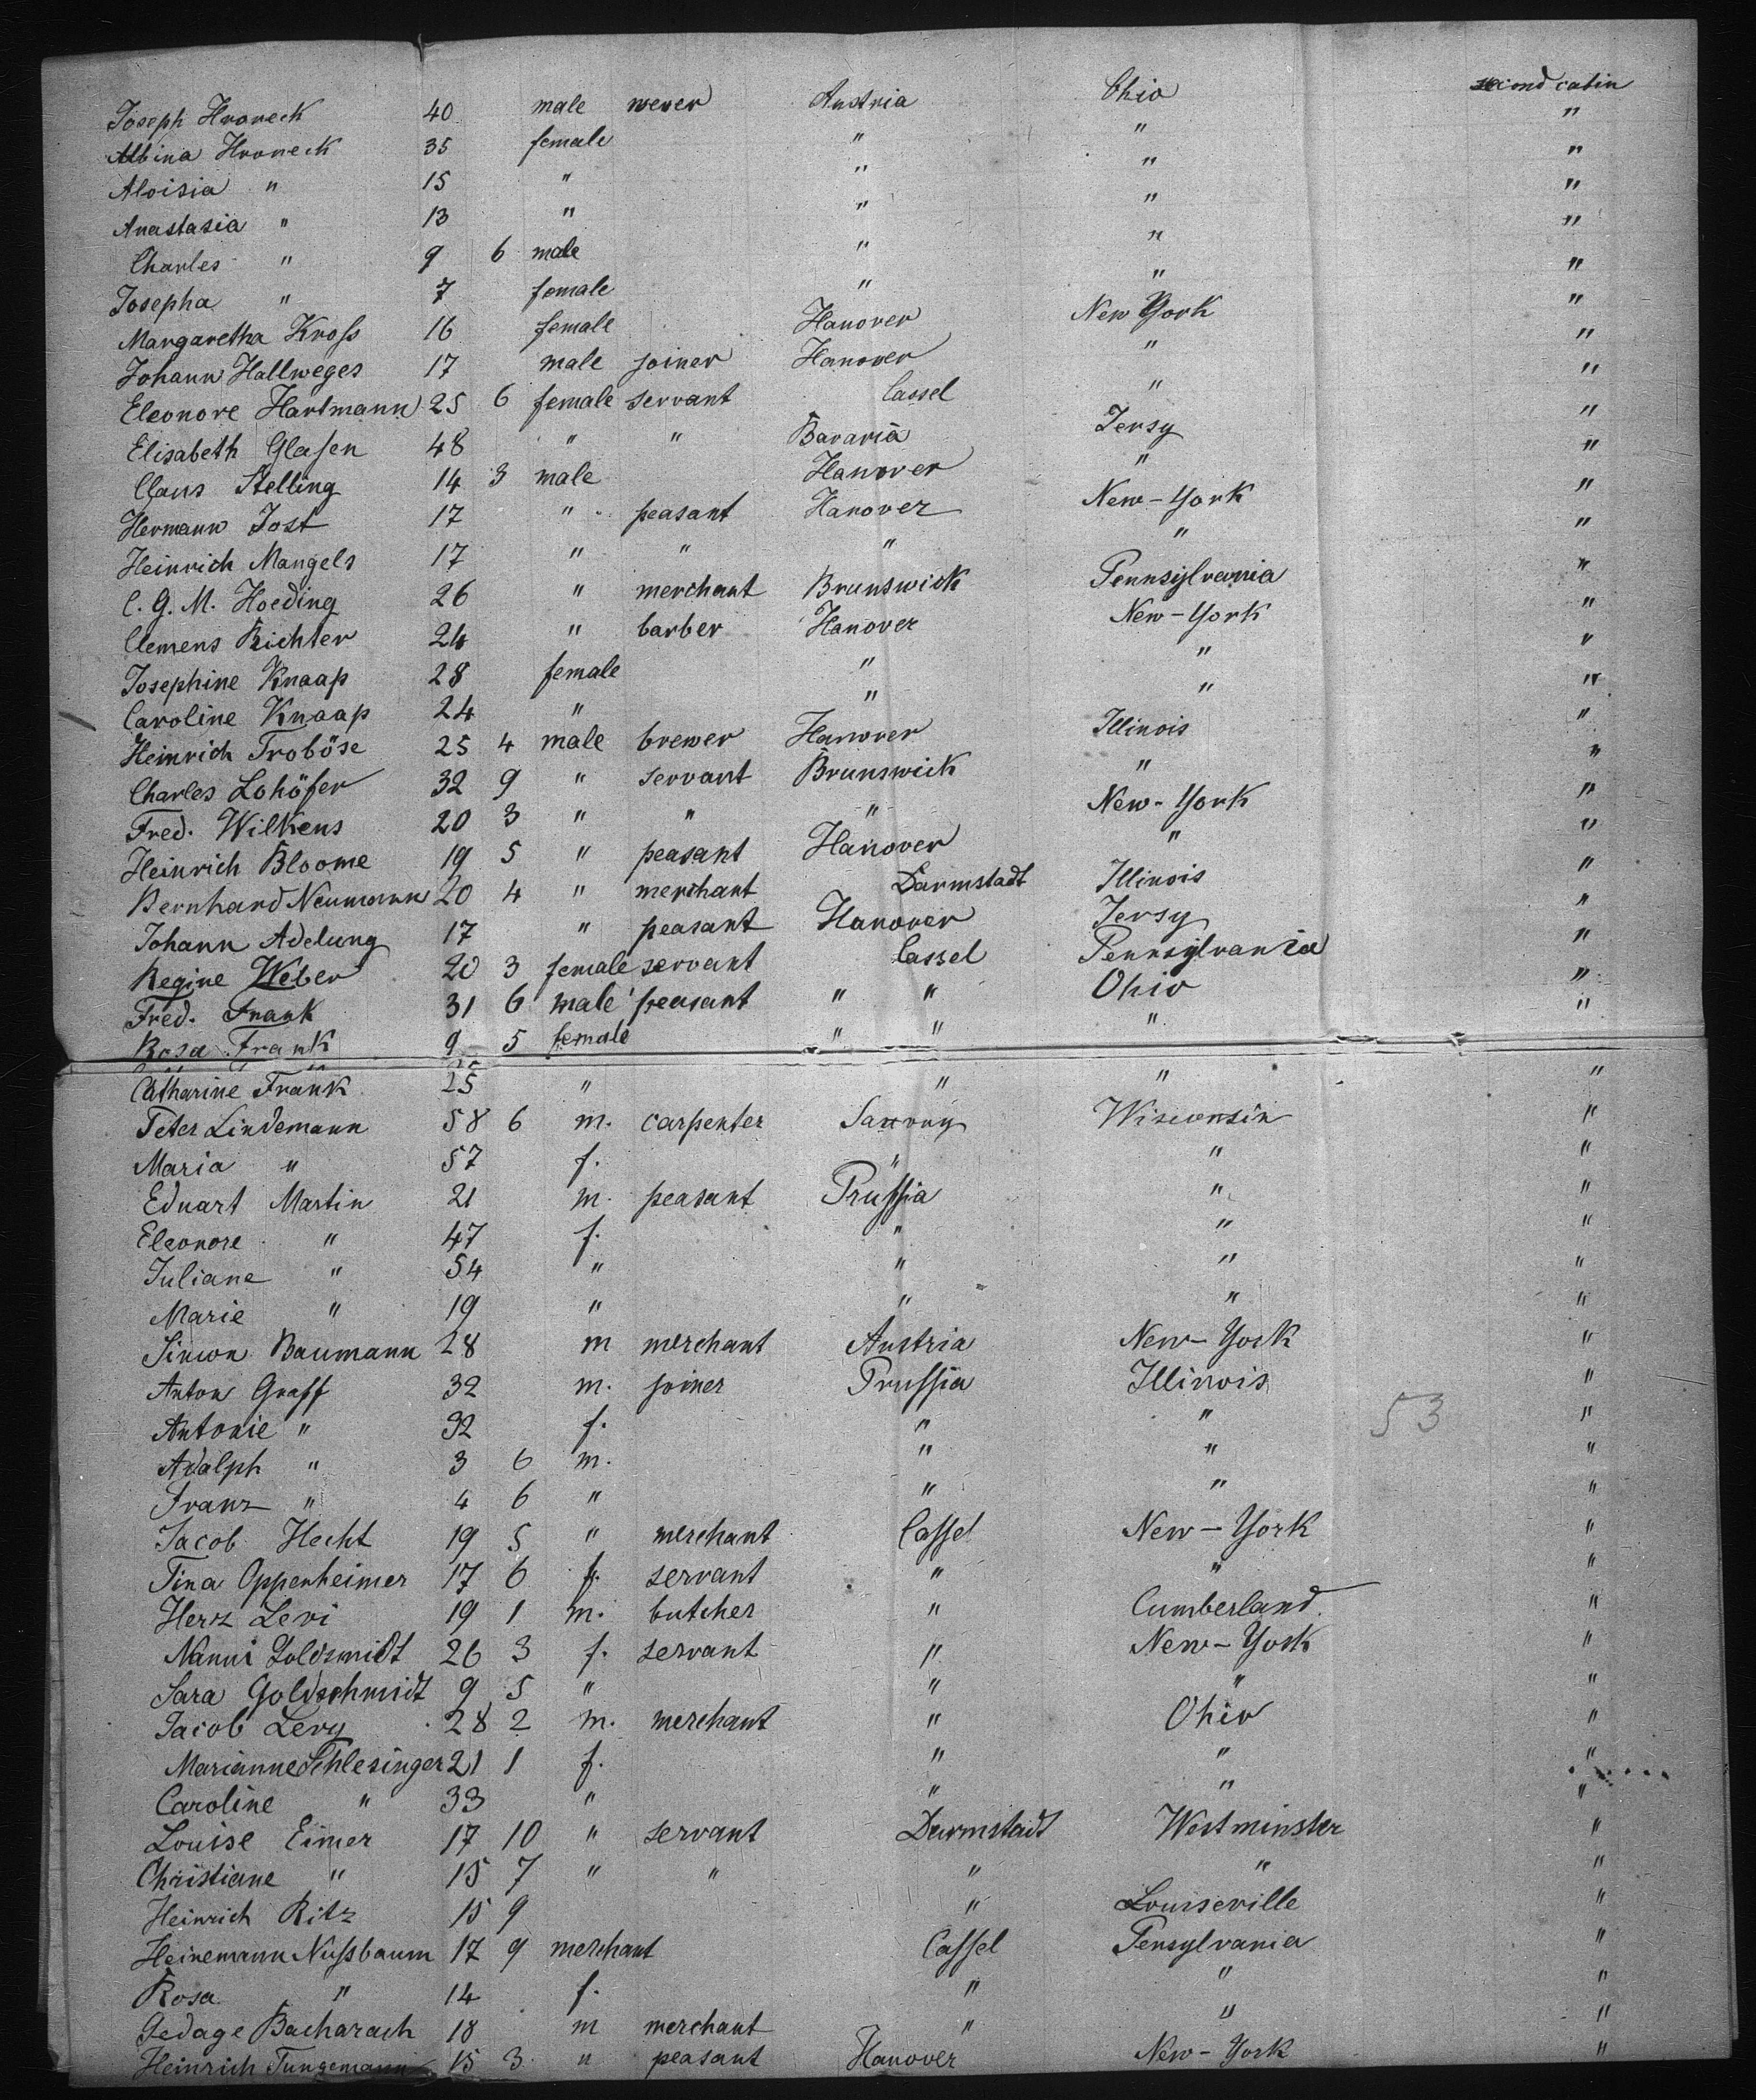 Joseph Hroneck 40 male wever Austria Ohio second cabin
Albina Hroneck 35 female " " "
Aloisia " 15 " " " "
Anastasia " 13 " " " "
Charles " 9 6 male " " "
Josepha " 7 female " " "
Margaretha Kross 16 female Hanover New York "
Johann Hallweges 17 male joiner Hanover " "
Eleonore Hartmann 25 6 female servant Cassel " "
Elisabeth Glasen 48 " " Bavaria Jersy "
Claus Stelling 14 3 male Hanover " "
Hermann Jost 17 " peasant Hanover New-York "
Heinrich Mangels 17 " " " " "
C. G. M. Hoeding 26 " merchant Brunswick Pennsylvania "
Clemens Richter 24 " barber Hanover New-York "
Josephine Knaap 28 female " " "
Caroline Knaap 24 " " " "
Heinrich Froböse 25 4 male brewer Hanover Illinois "
Charles Lohöfer 32 9 " servant Brunswick " "
Fred. Wilkens 20 3 " " " New-York "
Heinrich Bloome 19 5 " peasant Hanover " "
Bernhard Neumann 20 4 " merchant Darmstadt Illinois "
Johann Adelung 17 " peasant Hanover Jersy "
Regine Weber 20 3 female servant Cassel Pennsylvania "
Fred. Frank 31 6 male peasant " " Ohio "
Rosa Frank 9 5 female " " " "
Catharine Frank 25 " " " "
Peter Lindemann 58 6 m. carpenter Saxony Wisconsin "
Maria " 57 f. " " "
Eduart Martin 21 m. peasant Prussia " "
Eleonore " 47 f. " " "
Juliane " 54 " " " "
Marie " 19 " " " "
Simon Baumann 28 m merchant Austria New-York "
Anton Graff 32 m. joiner Prussia Illinois "
Antonie " 32 f. " " 53 "
Adalph " 3 6 m. " " "
Franz " 4 6 " " " "
Jacob Hecht 19 5 " merchant Cassel New-York "
Tina Oppenheimer 17 6 f. servant " " "
Herz Levi 19 1 m. butcher " Cumberland "
Nanni Goldzmidt 26 3 f. servant " New-York "
Sara Goldschmidt 9 5 " " " "
Jacob Levy 28 2 m. merchant " Ohio "
Marianne Schlesinger 21 1 f. " " "
Caroline " 33 " " " "
Louise Eimer 17 10 " servant Darmstadt Westminster "
Christiane " 15 7 " " " " "
Heinrich Ritz 15 9 " Louiseville "
Heinemann Nussbaum 17 9 merchant Cassel Pensylvania "
Rosa " 14 f. " " "
Gedage Bacharach 18 m merchant " " "
Heinrich Tungemann 15 3 " peasant Hanover New-York "